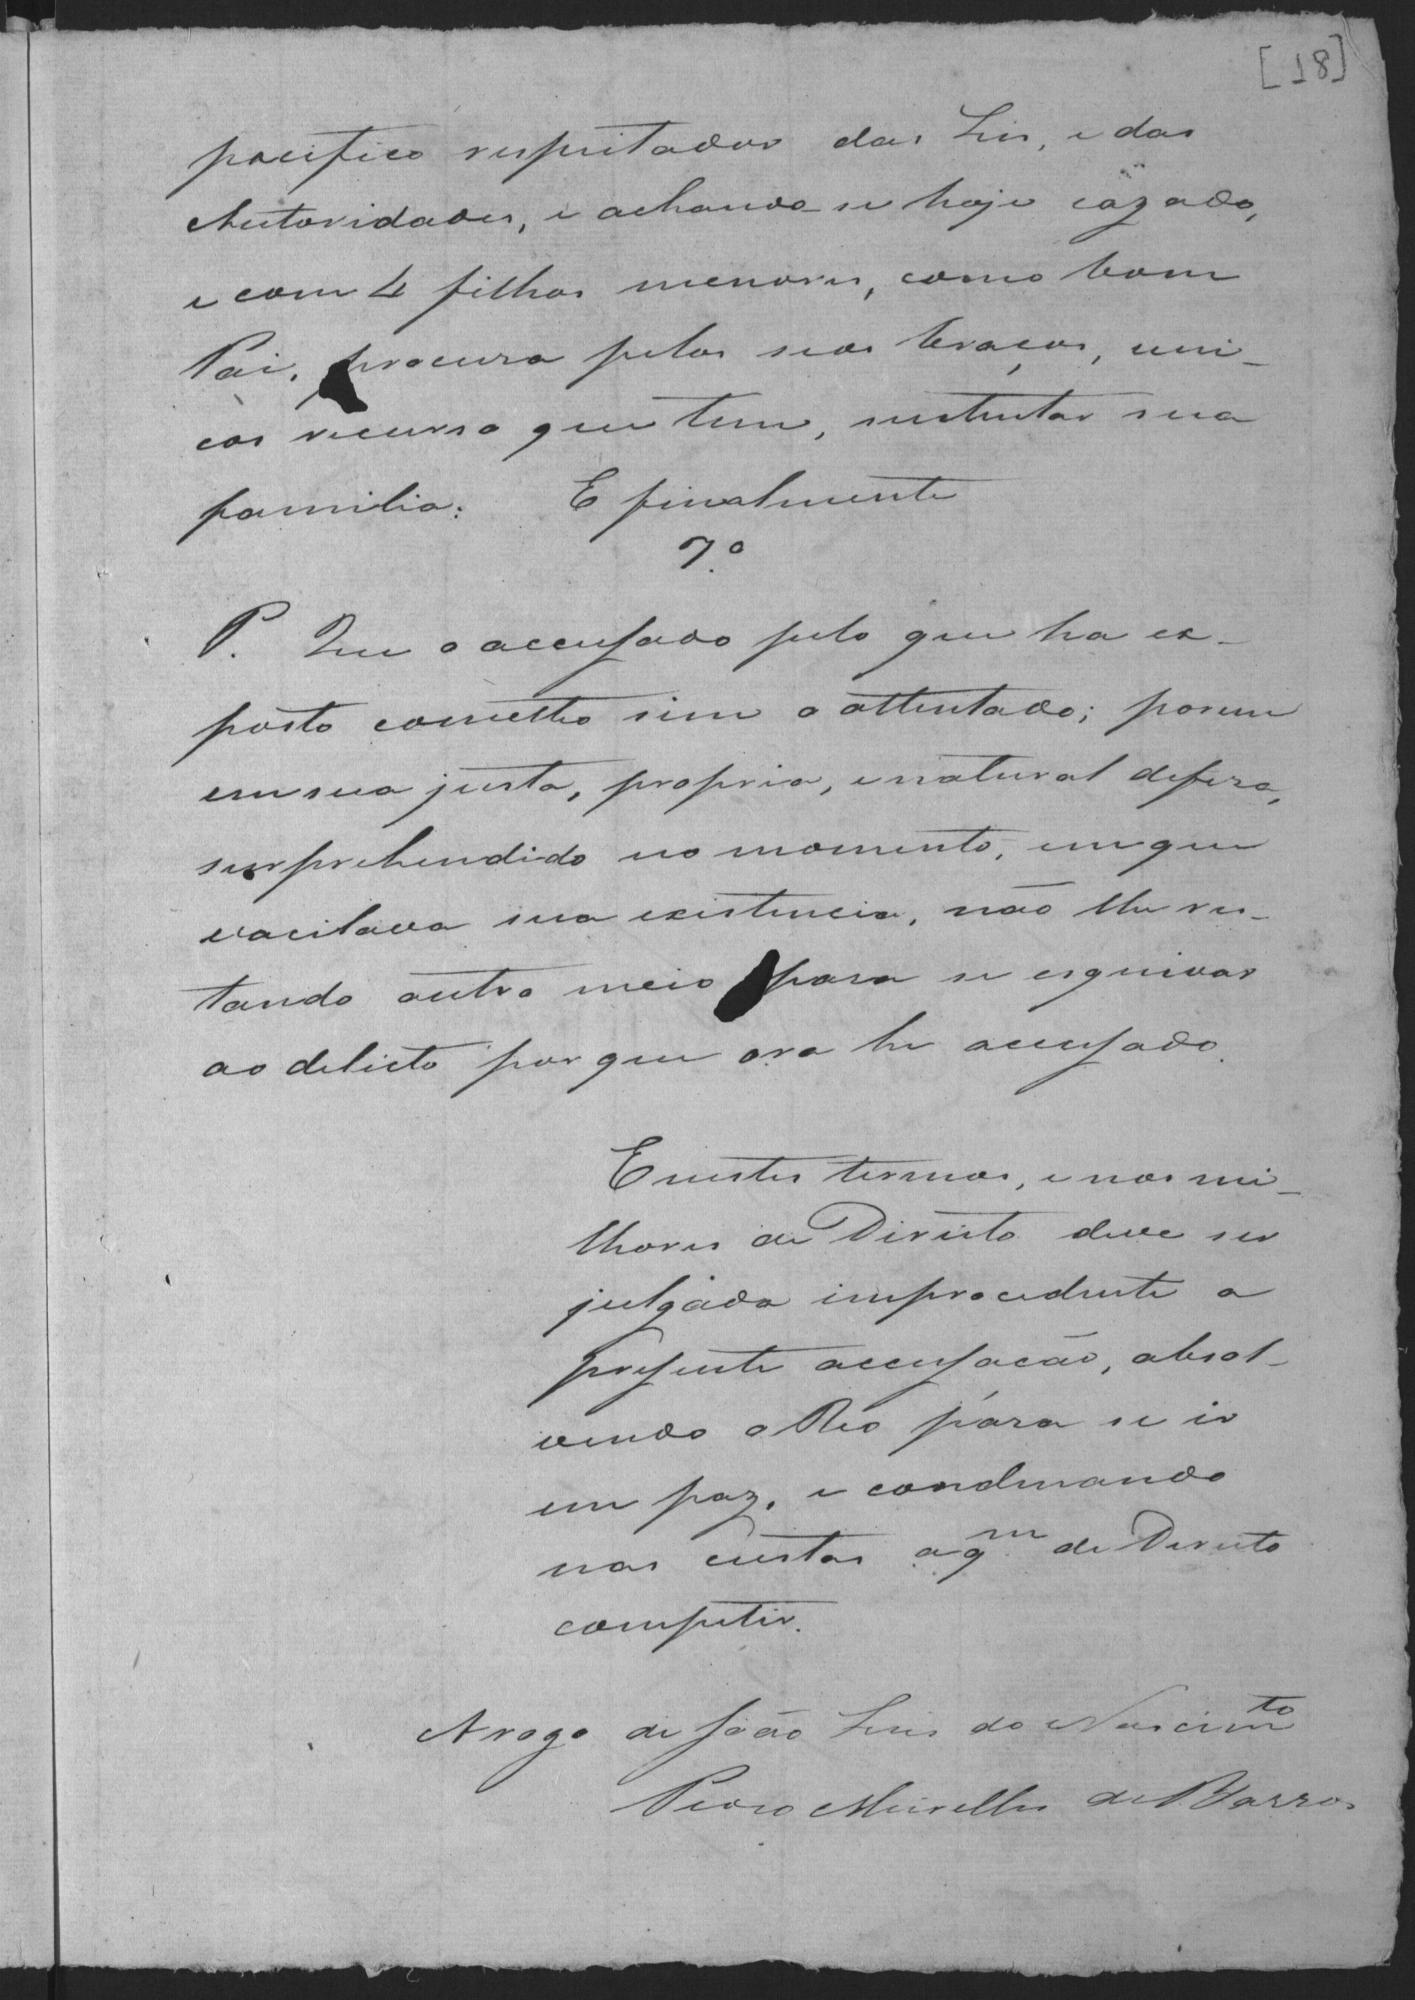 [18]
pacifico respeitador das Leis, e das
Autoridades, e achando-se hoje cazado,
e com 4 filhos menores, como bom
Pai, procura pelos seos braços, uni-
cos recurso que tem, sustentar sua
familia: E finalmente
7.º
P. Que o accusado pelo que ha ex-
posto cometteo sim o attentado; porem
em sua justa, propria, e natural defeza,
surprehendido no momento, em que
vacilava sua existencia, não lhe res-
tando outro meio para se esquivar
ao delicto por que ora he accusado.
E nestes termos, e nos mi-
lhores de Direito deve ser
julgada improcedente a
presente accusação, absol-
vendo o Reo para se ir
em paz, e condenando
nas custas a qm. de Direito
competir.
A rogo de João Luis do Nascimto
Pedro Meirelles de Barros